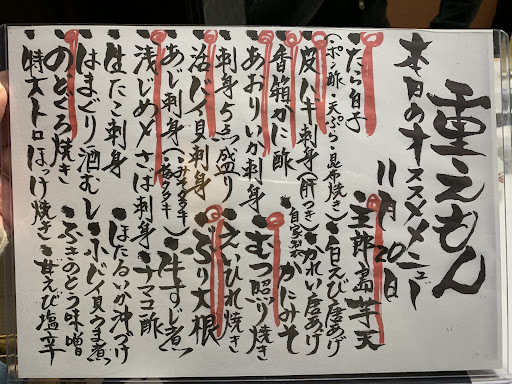 重えもん
本日のオススメメニュー
11月20日
・たら白子
(ポン酢・天ぷら・昆布焼き)
・五郎島芋天
・皮ハギ刺身(肝つき)
・白えび唐あげ
・香箱かに酢
・かれい唐あげ
・あおりいか刺身
・自家製かにみそ
・刺身5点盛り
・むつ照り焼き
・活バイ貝刺身
・えいひれ焼き
・あじ刺身(みそタタキ・塩タタキ)
・ぶり大根
・浅じめさば刺身
・牛すじ煮
・生たこ刺身
・ナマコ酢
・はまぐり酒むし
・ほたるいか沖づけ
・のどぐろ焼き
・小バイ貝うま煮
・特大トロほっけ焼き
・ふきのとう味噌
・甘えび塩辛